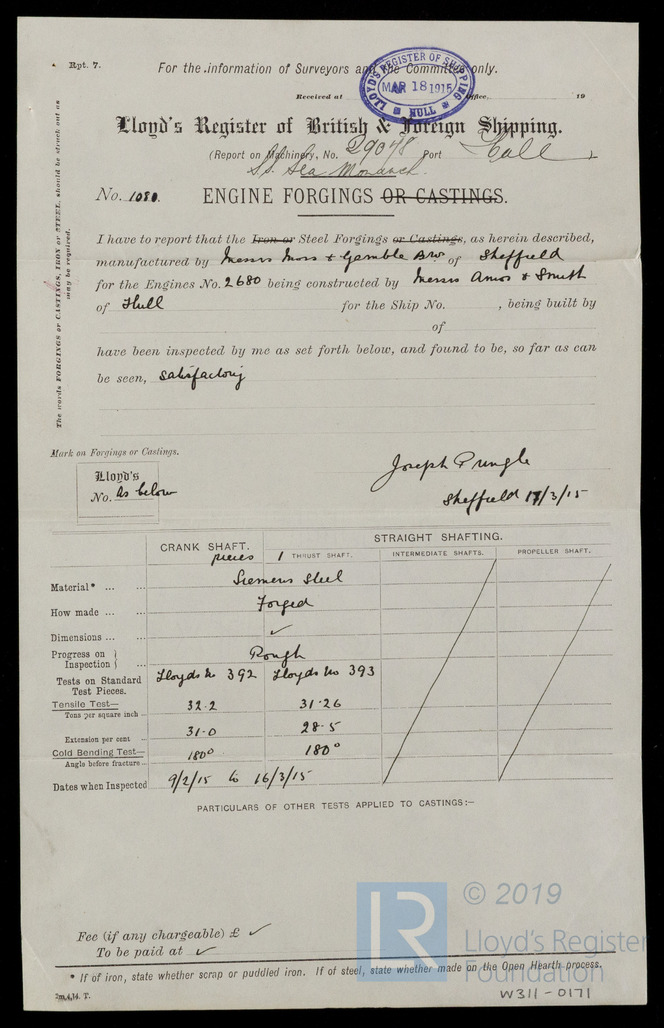 Rpt. 7.
For the information of Surveyors and the Committee only.
Received at Office, 19
LLOYD'S REGISTER OF SHIPPING
MAR 18 1915
HULL
Lloyd's Register of British & Foreign Shipping.
(Report on Machinery, No. 29048 Port Hull )
S.S. Sea Monarch.
No. 1080. ENGINE FORGINGS OR CASTINGS.
The words FORGINGS or CASTINGS, IRON or STEEL, should be struck out as may be required.
I have to report that the Iron or Steel Forgings or Castings, as herein described,
manufactured by Messrs Moss & Gamble Bros of Sheffield
for the Engines No. 2680 being constructed by Messrs Amos & Smith
of Hull for the Ship No. , being built by
of
have been inspected by me as set forth below, and found to be, so far as can
be seen, satisfactory
Mark on Forgings or Castings.
Lloyd's
No. As below
Joseph Pringle
Sheffield 17/3/15
CRANK SHAFT. STRAIGHT SHAFTING.
pieces 1 THRUST SHAFT. INTERMEDIATE SHAFTS. PROPELLER SHAFT.
Material* ... ... Siemens Steel
How made ... ... Forged
Dimensions ... ... ✓
Progress on Inspection } ... Rough
Tests on Standard Test Pieces. Lloyds No 392 Lloyds No 393
Tensile Test—
Tons per square inch .. 32.2 31.26
Extension per cent .. 31.0 28.5
Cold Bending Test—
Angle before fracture .. 180° 180°
Dates when Inspected 9/2/15 to 16/3/15
PARTICULARS OF OTHER TESTS APPLIED TO CASTINGS:—
Fee (if any chargeable) £ ✓
To be paid at ✓
* If of iron, state whether scrap or puddled iron. If of steel, state whether made on the Open Hearth process.
2m,4,14. T.
LR
© 2019
Lloyd's Register
Foundation
W311-0171